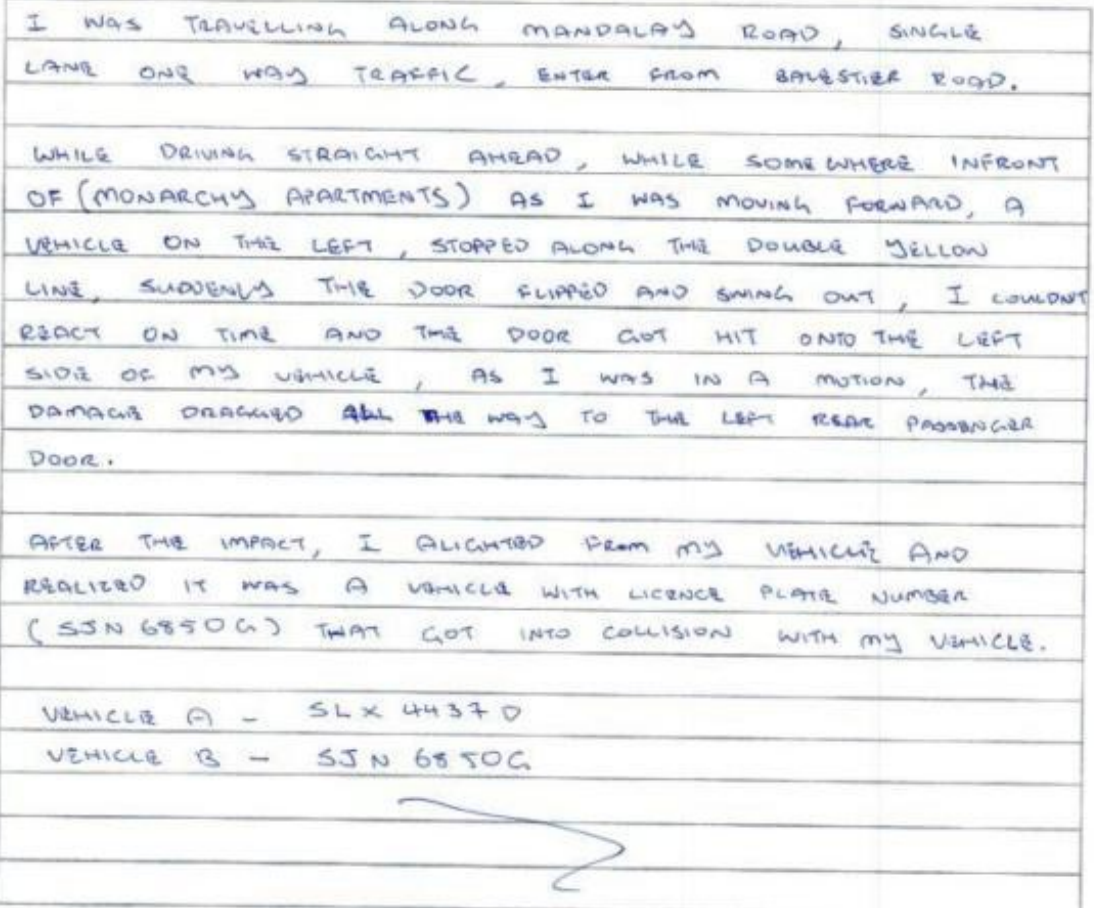 I WAS TRAVELLING ALONG MANDALAY ROAD, SINGLE
LANE ONE WAY TRAFFIC, ENTER FROM BALESTIER ROAD.
WHILE DRIVING STRAIGHT AHEAD, WHILE SOMEWHERE INFRONT
OF (MONARCHY APARTMENTS) AS I WAS MOVING FORWARD, A
VEHICLE ON THE LEFT, STOPPED ALONG THE DOUBLE YELLOW
LINE, SUDDENLY THE DOOR FLIPPED AND SWING OUT, I COULDNT
REACT ON TIME AND THE DOOR GOT HIT ONTO THE LEFT
SIDE OF MY VEHICLE, AS I WAS IN A MOTION, THE
DAMAGE DRAGGED ALL THE WAY TO THE LEFT REAR PASSENGER
DOOR.
AFTER THE IMPACT, I ALIGHTED FROM MY VEHICLE AND
REALIZED IT WAS A VEHICLE WITH LICENCE PLATE NUMBER
(SJN 6850G) THAT GOT INTO COLLISION WITH MY VEHICLE.
VEHICLE A - SLX 4437D
VEHICLE B - SJN 6850G